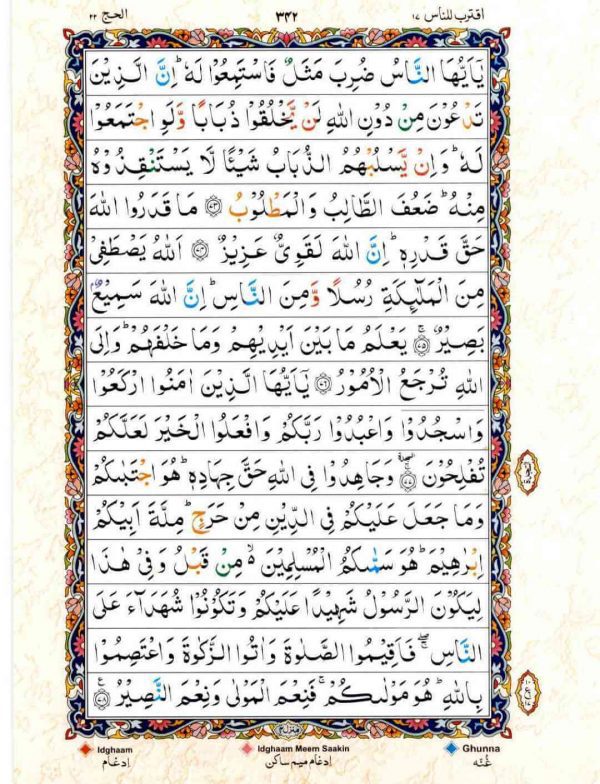 اقترب للناس ١٧ ٣٤٢ الحج ٢٢
يٰۤاَيُّهَا النَّاسُ ضُرِبَ مَثَلٌ فَاسْتَمِعُوْا لَهٗ ؕ اِنَّ الَّذِيْنَ
تَدْعُوْنَ مِنْ دُوْنِ اللّٰهِ لَنْ يَّخْلُقُوْا ذُبَابًا وَّلَوِ اجْتَمَعُوْا
لَهٗ ؕ وَاِنْ يَّسْلُبْهُمُ الذُّبَابُ شَيْـًٔا لَّا يَسْتَنْقِذُوْهُ
مِنْهُ ؕ ضَعُفَ الطَّالِبُ وَالْمَطْلُوْبُ ﴿٧٣﴾ مَا قَدَرُوا اللّٰهَ
حَقَّ قَدْرِهٖ ؕ اِنَّ اللّٰهَ لَقَوِيٌّ عَزِيْزٌ ﴿٧٤﴾ اَللّٰهُ يَصْطَفِيْ
مِنَ الْمَلٰٓئِكَةِ رُسُلًا وَّمِنَ النَّاسِ ؕ اِنَّ اللّٰهَ سَمِيْعٌۢ
بَصِيْرٌ ﴿٧٥﴾ ۚ يَعْلَمُ مَا بَيْنَ اَيْدِيْهِمْ وَمَا خَلْفَهُمْ ؕ وَاِلَى
اللّٰهِ تُرْجَعُ الْاُمُوْرُ ﴿٧٦﴾ يٰۤاَيُّهَا الَّذِيْنَ اٰمَنُوا ارْكَعُوْا
وَاسْجُدُوْا وَاعْبُدُوْا رَبَّكُمْ وَافْعَلُوا الْخَيْرَ لَعَلَّكُمْ
تُفْلِحُوْنَ ﴿٧٧﴾ السجدة وَجَاهِدُوْا فِي اللّٰهِ حَقَّ جِهَادِهٖ ؕ هُوَ اجْتَبٰىكُمْ
السجدة
وَمَا جَعَلَ عَلَيْكُمْ فِي الدِّيْنِ مِنْ حَرَجٍ ؕ مِلَّةَ اَبِيْكُمْ
اِبْرٰهِيْمَ ؕ هُوَ سَمّٰىكُمُ الْمُسْلِمِيْنَ ۙ مِنْ قَبْلُ وَفِيْ هٰذَا
لِيَكُوْنَ الرَّسُوْلُ شَهِيْدًا عَلَيْكُمْ وَتَكُوْنُوْا شُهَدَآءَ عَلَى
النَّاسِ ۚۖ فَاَقِيْمُوا الصَّلٰوةَ وَاٰتُوا الزَّكٰوةَ وَاعْتَصِمُوْا
بِاللّٰهِ ؕ هُوَ مَوْلٰىكُمْ ۚ فَنِعْمَ الْمَوْلٰى وَنِعْمَ النَّصِيْرُ ﴿٧٨﴾ ع
Idghaam Idghaam Meem Saakin Ghunna
ادغام ادغام میم ساکن غنّه